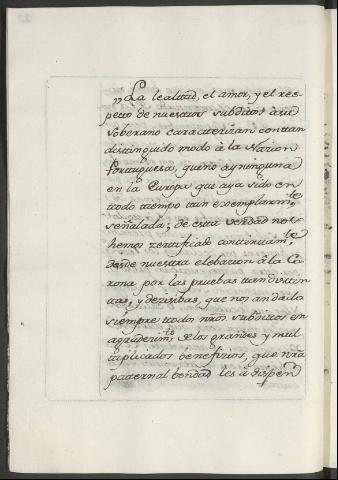 „La lealtad, el amor, y el res-
petto de nuesttros subditos à su
soberano caractterizan con ttan
disttinguido modo à la Nazion
Portuguesa, que no ay ninguna
en la Europa que aya sido en
ttodo ttiempo ttan exemplarm.te
señalada; de estta verdad nos
hemos zerttificado conttinuam.te
desde nuesttra elebazion à la Co-
rona por las pruebas ttan disttin-
ttas, y dezisibas, que nos an dado
siempre ttodos nros subdittos en
agradezim.to de los grandes y mul-
ttiplicados benefizios, que nra
patternal bondad les à dispen